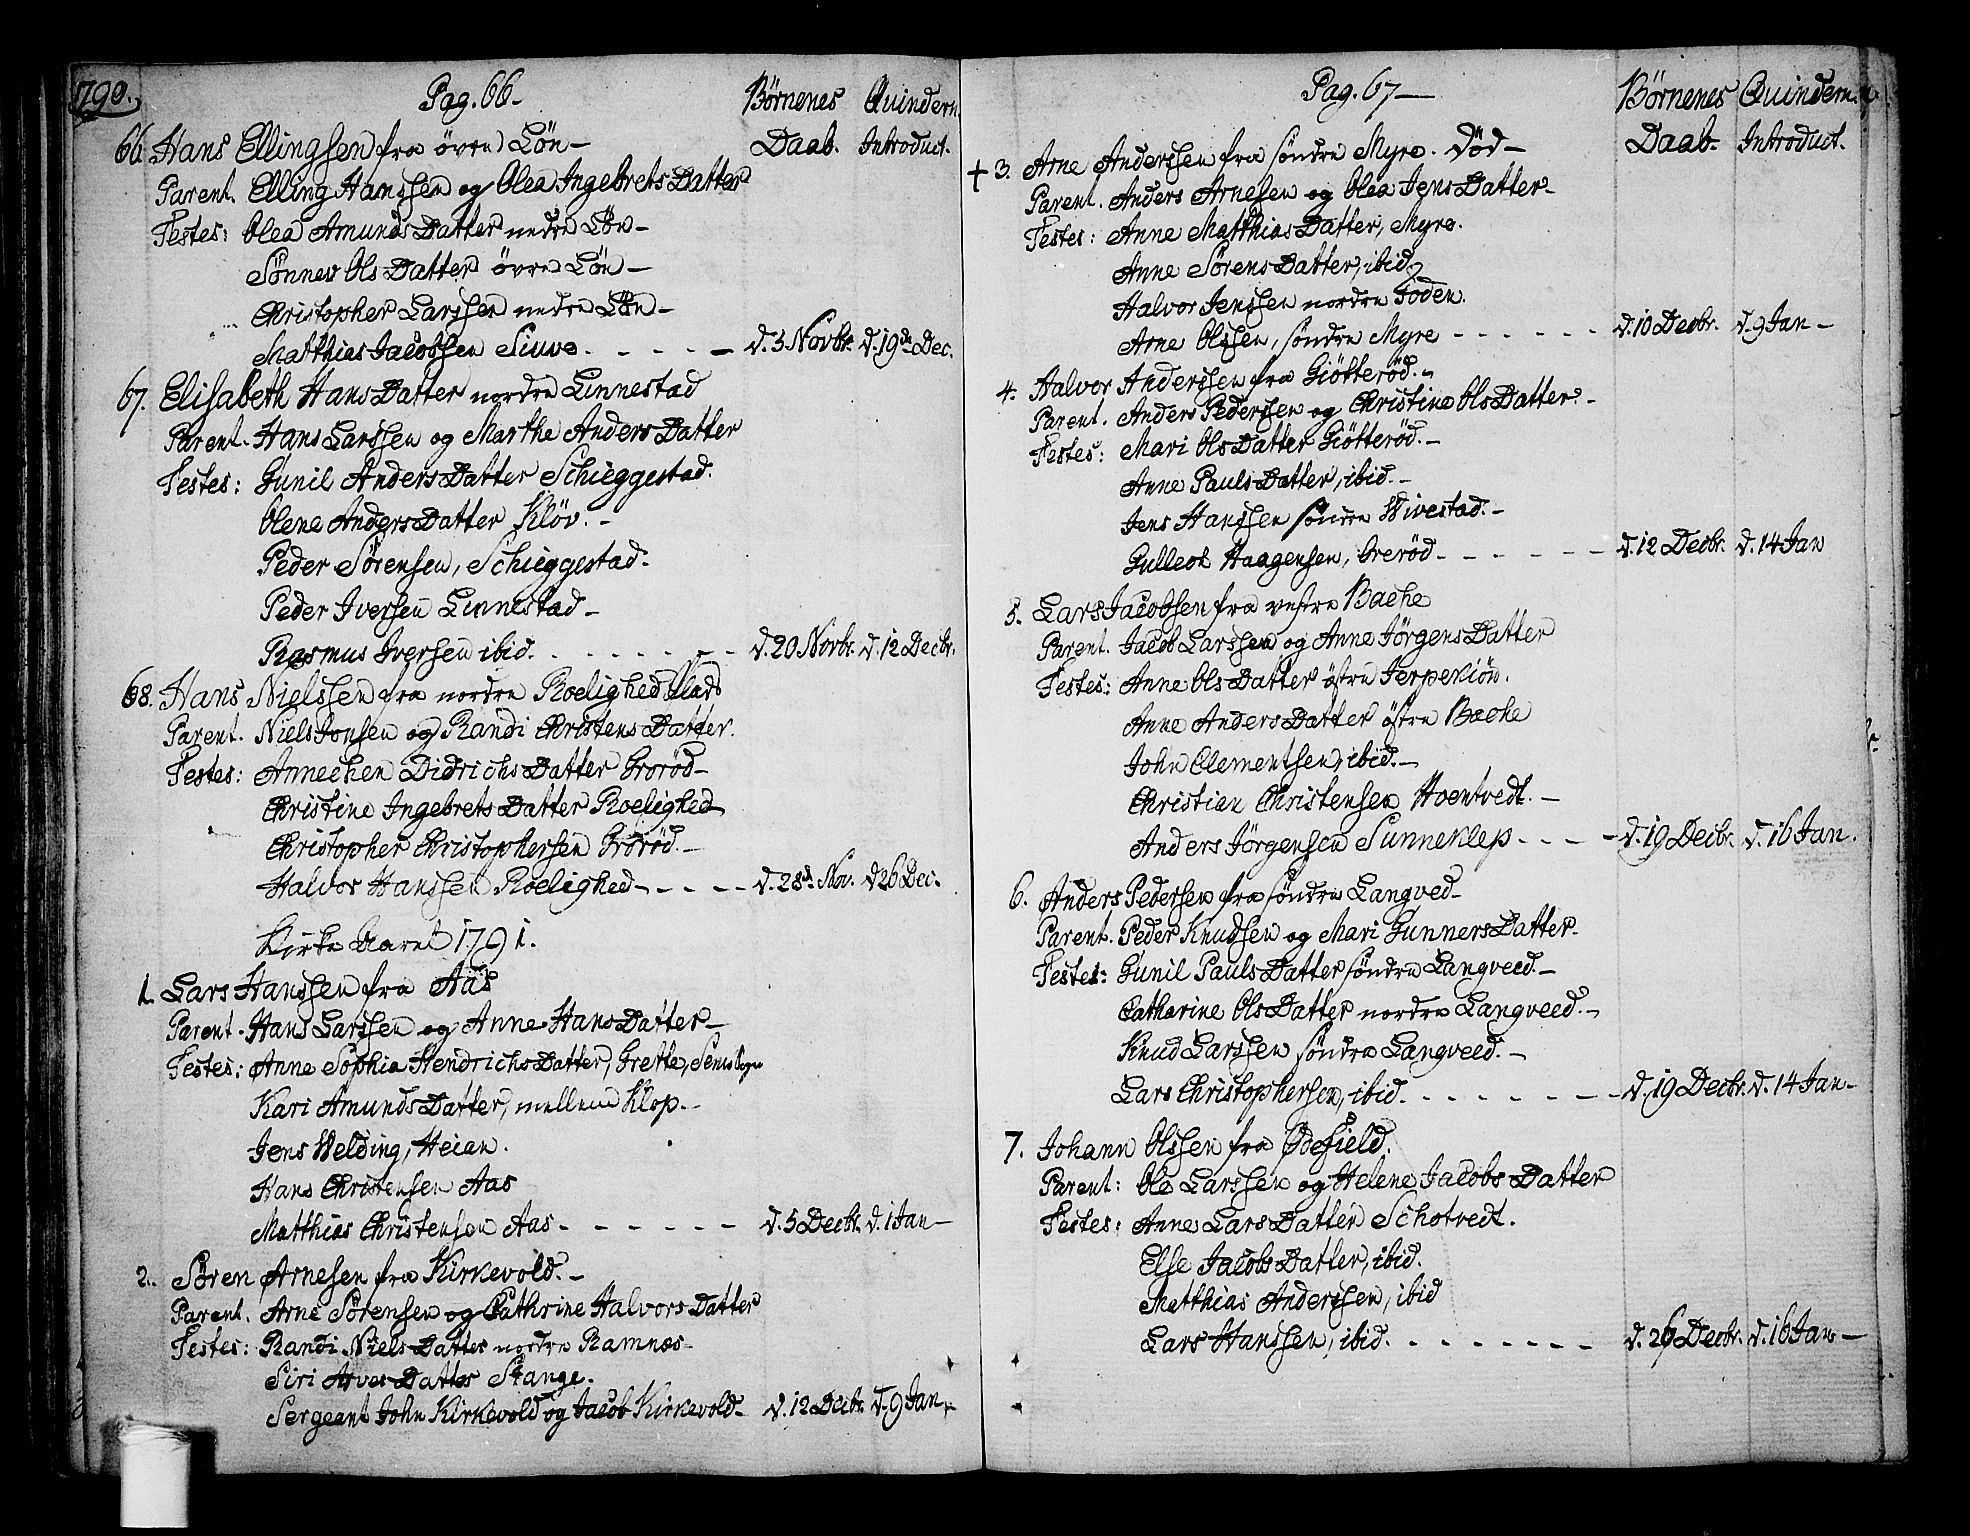 1790.
Pag. 66.
Börnenes Quindern.
Daab. Introduct.
66. Hans Ellingsen fra övre Lön
Parent. Elling Hanssen og Olea Ingebrets Datter
Testes: Olea Amunds Datter nedre Lön
Sönnev Ols Datter övre Lön
Christopher Larssen nedre Lön
Matthias Jacobsen Siuve. d. 3 Novbr. d. 19de Dec.
67. Elisabeth Hans Datter nordre Linnestad
Parent. Hans Larssen og Marthe Anders Datter
Testes: Gunil Anders Datter Schieggestad.
Olene Anders Datter Klöv.
Peder Sörensen, Schieggestad.
Peder Iversen Linnestad
Rasmus Iversen ibid. d. 20 Novbr. d. 12 Decbr.
68. Hans Nielssen fra nordre Roelighed
Parent. Niels Jonsen og Randi Christens Datter.
Testes: Annechen Didrichs Datter Groröd
Christine Ingebrets Datter Roelighed
Christopher Christophersen Groröd.
Halvor Hanssen Roelighed d. 28d Nov. d 26 Dec.
Kirke Aaret 1791.
1. Lars Hanssen fra Aas
Parent. Hans Larssen og Anne Hans Datter
Testes: Anne Sophia Hendrichs Datter, Grette, Sems Sogn
Kari Amunds Datter, mellem Klop.
Jens Welding, Heian.
Hans Christensen Aas
Matthias Christensen Aas. d. 5 Decbr. d. 1 Jan
2. Sören Arnesen fra Kirkevold.
Parent. Arne Sörensen og Cathrine Halvors Datter
Testes: Randi Niels Datter nordre Ramnæs
Siri Arves Datter Stange.
Sergeant John Kirkevold og Jacob Kirkevold d. 12 Decbr. d. 9 Jan
Pag. 67
Börnenes Quindern.
Daab. Introduct.
+ 3. Arne Anderssen fra söndre Myre. Död
Parent. Anders Arnesen og Olea Jens Datter
Testes: Anne Matthias Datter, Myre.
Anne Sörens Datter, ibid
Halvor Jenssen nordre Foden.
Arne Olssen, söndre Myre d. 10 Decbr. d. 9 Jan
4. Halvor Anderssen fra Giötteröd.
Parent. Anders Pederssen og Christine Ols Datter.
Testes: Mari Ols Datter Giötteröd.
Anne Pauls Datter, ibid.
Jens Hanssen söndre Wivestad.
Gulleck Haagensen, Oreröd d. 12 Decbr. d. 14 Jan
5. Lars Jacobsen fra vestre Bache
Parent. Jacob Larssen og Anne Jörgens Datter
Testes: Anne Ols Datter östre Jerpekiön.
Anne Anders Datter östre Bache
John Clementsen, ibid.
Christian Christensen Hoentvedt.
Anders Jörgensen Sunneklep d. 19 Decbr. d. 16 Jan.
6. Anders Pedersen fra söndre Langved
Parent. Peder Knudsen og Mari Gunners Datter
Testes: Gunil Pauls Datter söndre Langveed.
Catharine Ols Datter nordre Langveed.
Knud Larssen söndre Langveed.
Lars Christophersen, ibid. d. 19 Decbr. d. 14 Jan
7. Johann Olssen fra Ödefield.
Parent: Ole Larssen og Helene Jacobs Datter
Testes: Anne Lars Datter Schotvedt.
Else Jacobs Datter, ibid.
Matthias Anderssen, ibid
Lars Hanssen, ibid. d. 26 Decbr. d. 16 Jan